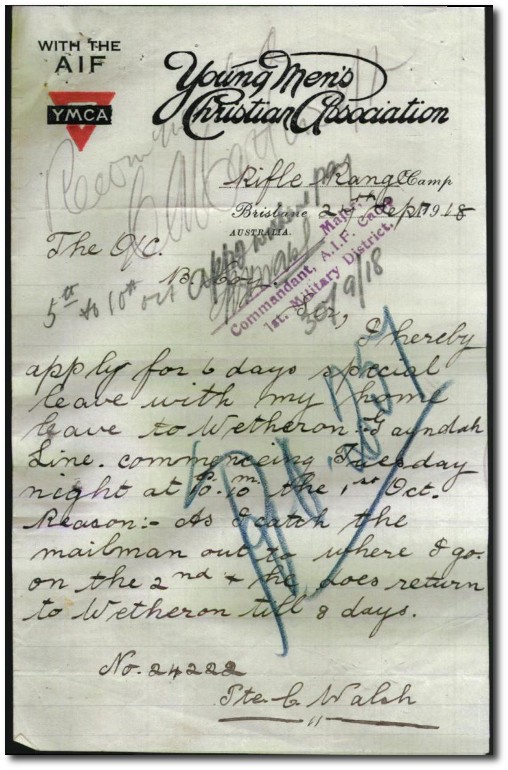 WITH THE
AIF
YMCA
Young Men's
Christian Association
Rifle Range Camp
Brisbane Sep 1918
AUSTRALIA.
The O/C.
B. Coy.
5th to 10th Oct approved without pay
Major,
Commandant, A.I.F. Camp
1st. Military District.
30/9/18
Sir,
I hereby
apply for 6 days special
leave with my home
leave to Wetheron. Gayndah
Line. commencing Tuesday
night at 10. the 1st Oct.
Reason:- As I catch the
mailman out to where I go.
on the 2nd & he does return
to Wetheron till 8 days.
No. 24222
Pte. C. Walsh